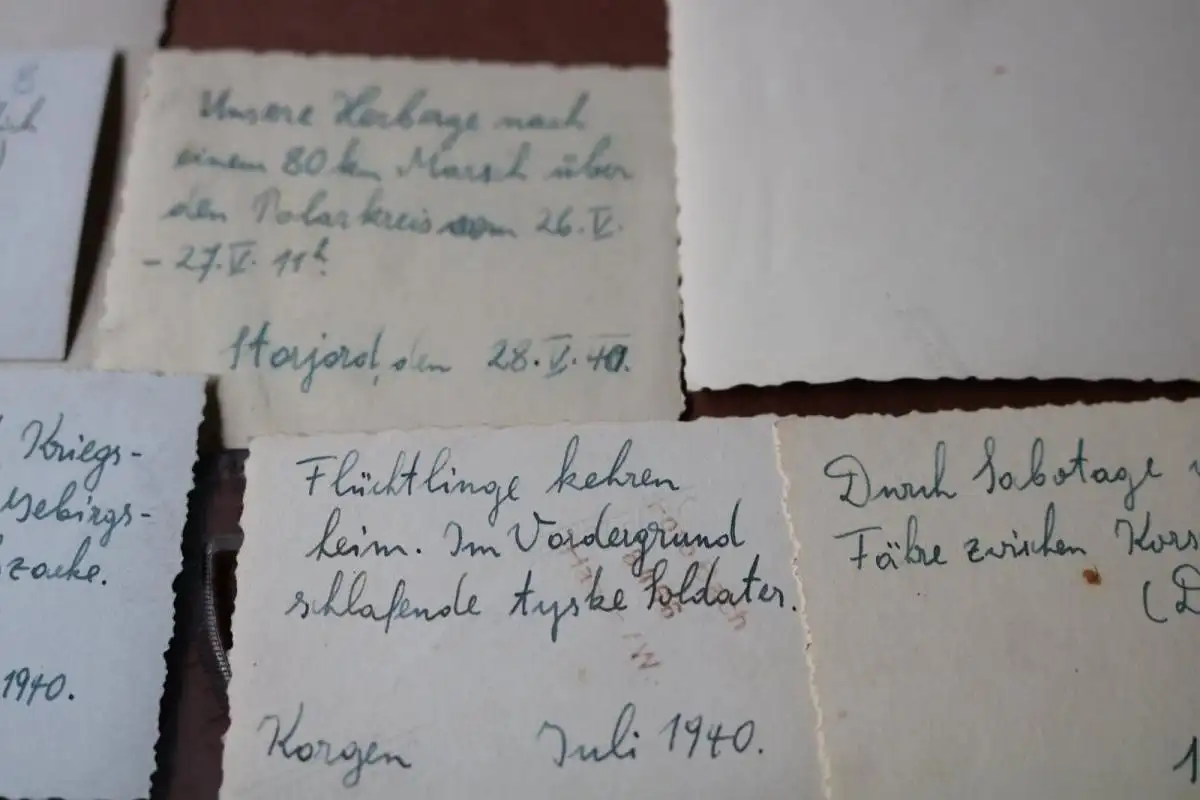 8
Unsere Herberge nach
einem 80 km Marsch über
den Polarkreis vom 26.V.
- 27.V. 11h.
Storjord, den 28.V.40.
Kriegs-
Gebirgs-
zacke.
1940.
Flüchtlinge kehren
heim. Im Vordergrund
schlafende tyske Soldater.
Korgen Juli 1940.
Durch Sabotage
Fähre zwischen Kors
(D
1